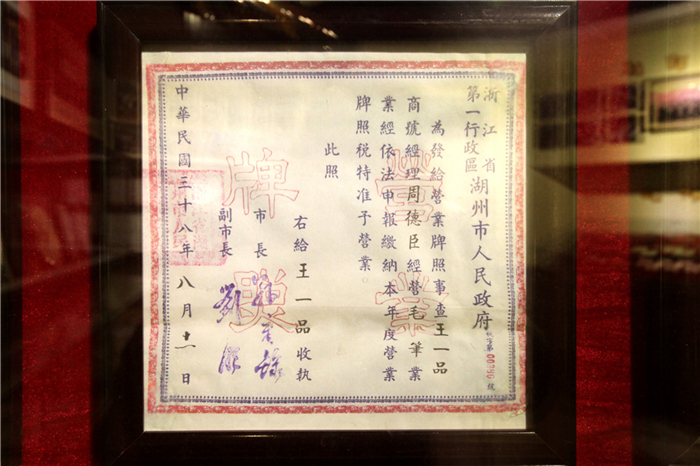 浙江省
第一行政區
湖州市人民政府
為發給營業牌照事查王一品
商號經理周德臣經營毛筆業
業經依法申報繳納本年度營業
牌照稅特准予營業。
此照
右給王一品收執
市長
副市長
中華民國三十八年八月十一日
營業
牌照